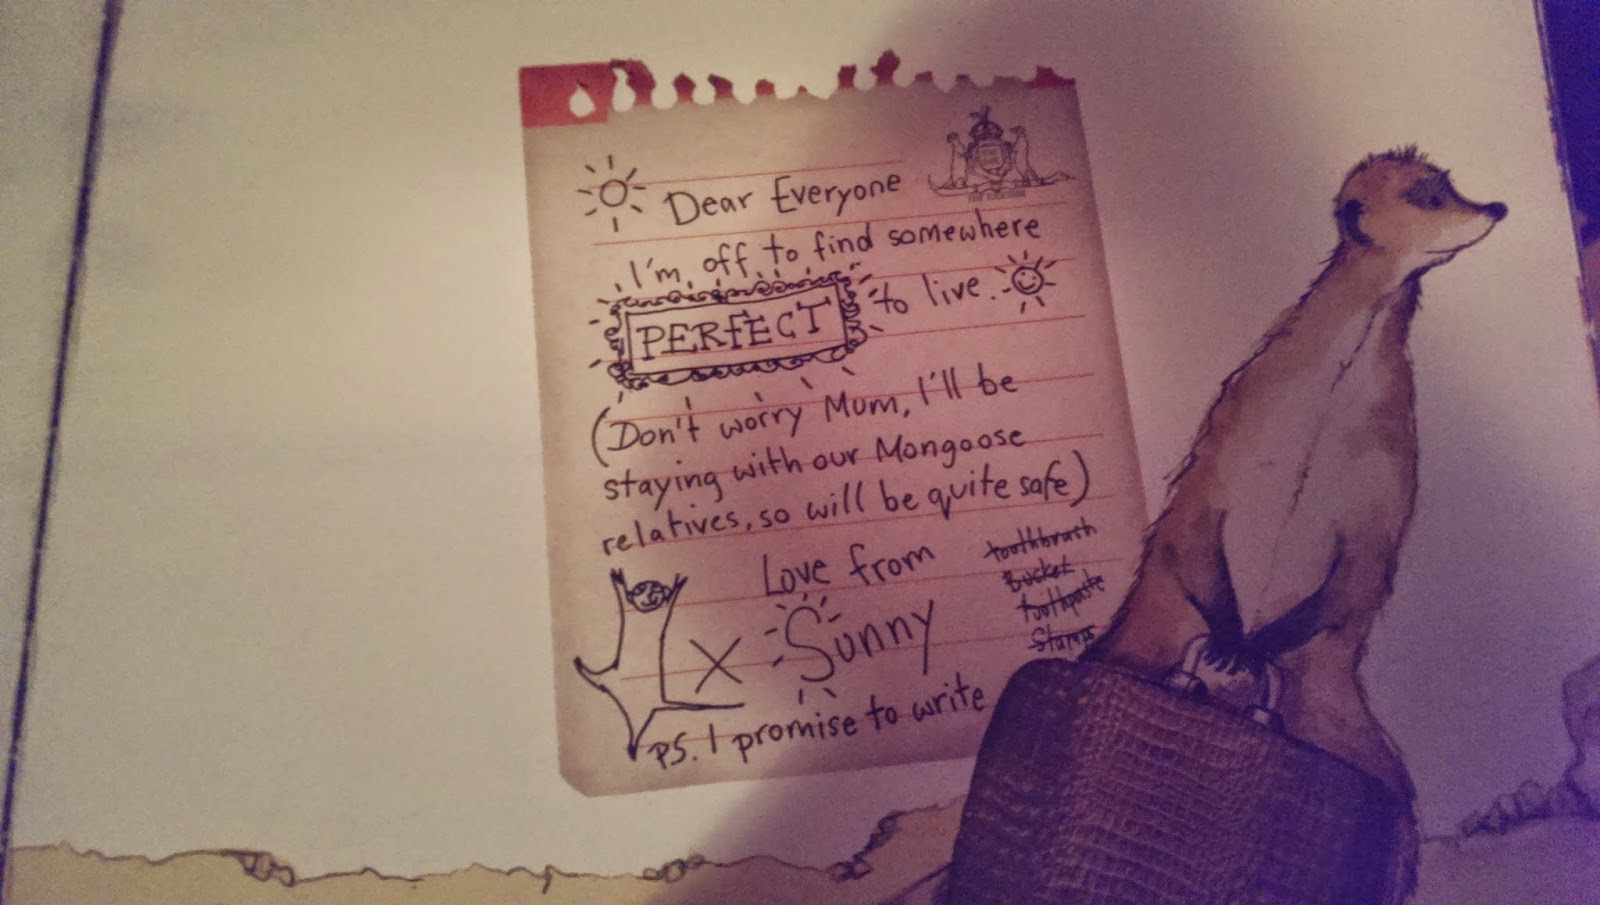 Dear Everyone
I'm off to find somewhere
PERFECT to live.
(Don't worry Mum, I'll be
staying with our Mongoose
relatives, so will be quite safe)
Love from
toothbrush
Bucket
toothpaste
Stamps
X Sunny
PS. I promise to write